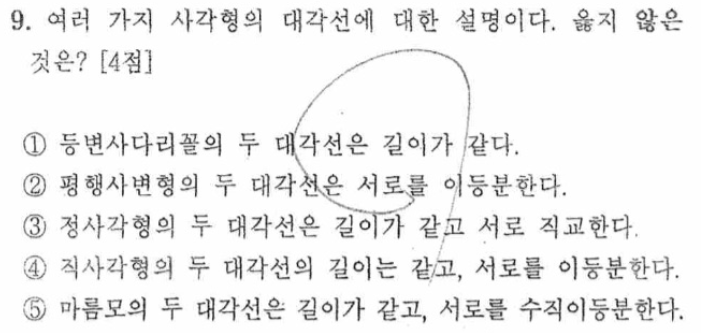 9. 여러 가지 사각형의 대각선에 대한 설명이다. 옳지 않은
것은? [4점]
① 등변사다리꼴의 두 대각선은 길이가 같다.
② 평행사변형의 두 대각선은 서로를 이등분한다.
③ 정사각형의 두 대각선은 길이가 같고 서로 직교한다.
④ 직사각형의 두 대각선의 길이는 같고, 서로를 이등분한다.
⑤ 마름모의 두 대각선은 길이가 같고, 서로를 수직이등분한다.